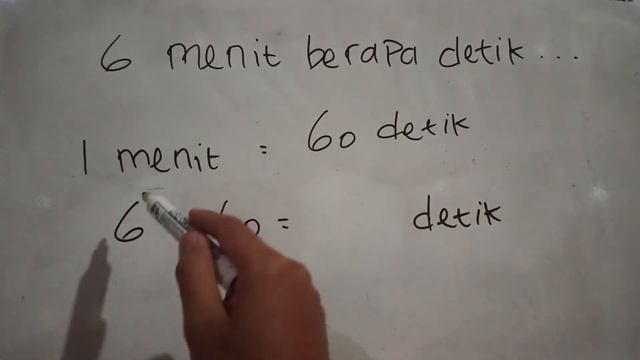 6 menit berapa detik...
1 menit = 60 detik
6 60 = detik